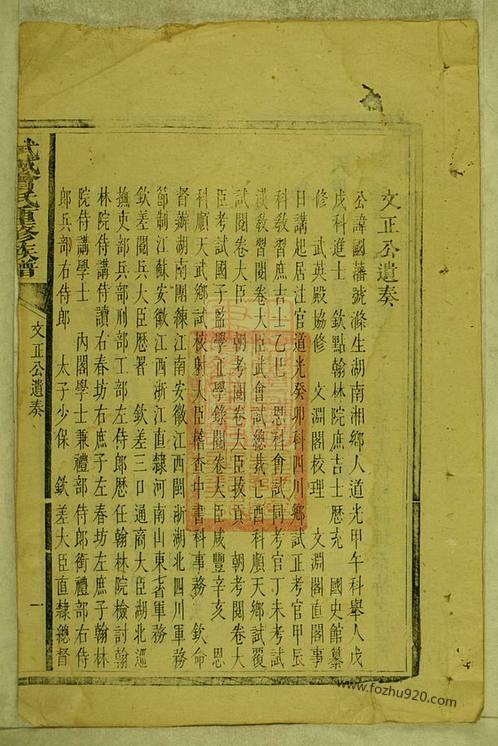 文正公遺奏
公諱國藩號滌生湖南湘鄉人道光甲午科舉人戊
戌科進士 欽點翰林院庶吉士歷充 國史館纂
修 武英殿協修 文淵閣校理 文淵閣直閣事
日講起居注官道光癸卯科四川鄉試正考官甲辰
科教習庶吉士乙巳 恩科會試同考官丁未考試
漢教習閱卷大臣武會試總裁己酉科順天鄉試覆
試閱卷大臣 朝考閱卷大臣拔貢 朝考閱卷大
臣考試國子監學正學錄閱卷大臣咸豐辛亥 恩
科順天武鄉試校射大臣稽查中書科事務 欽命
督辦湖南團練江南安徽江西閩浙湖北四川軍務
節制江蘇安徽江西浙江直隸河南山東三省軍務
欽差閱兵大臣歷署 欽差三口通商大臣湖北巡
撫吏部兵部刑部工部左侍郎歷任翰林院檢討翰
林院侍講侍讀右春坊右庶子左春坊左庶子翰林
院侍講學士 內閣學士兼禮部侍郎銜禮部右侍
郎兵部右侍郎 太子少保 欽差大臣直隸總督
武城曾氏重修族譜
文正公遺奏
一
www.fozhu920.com